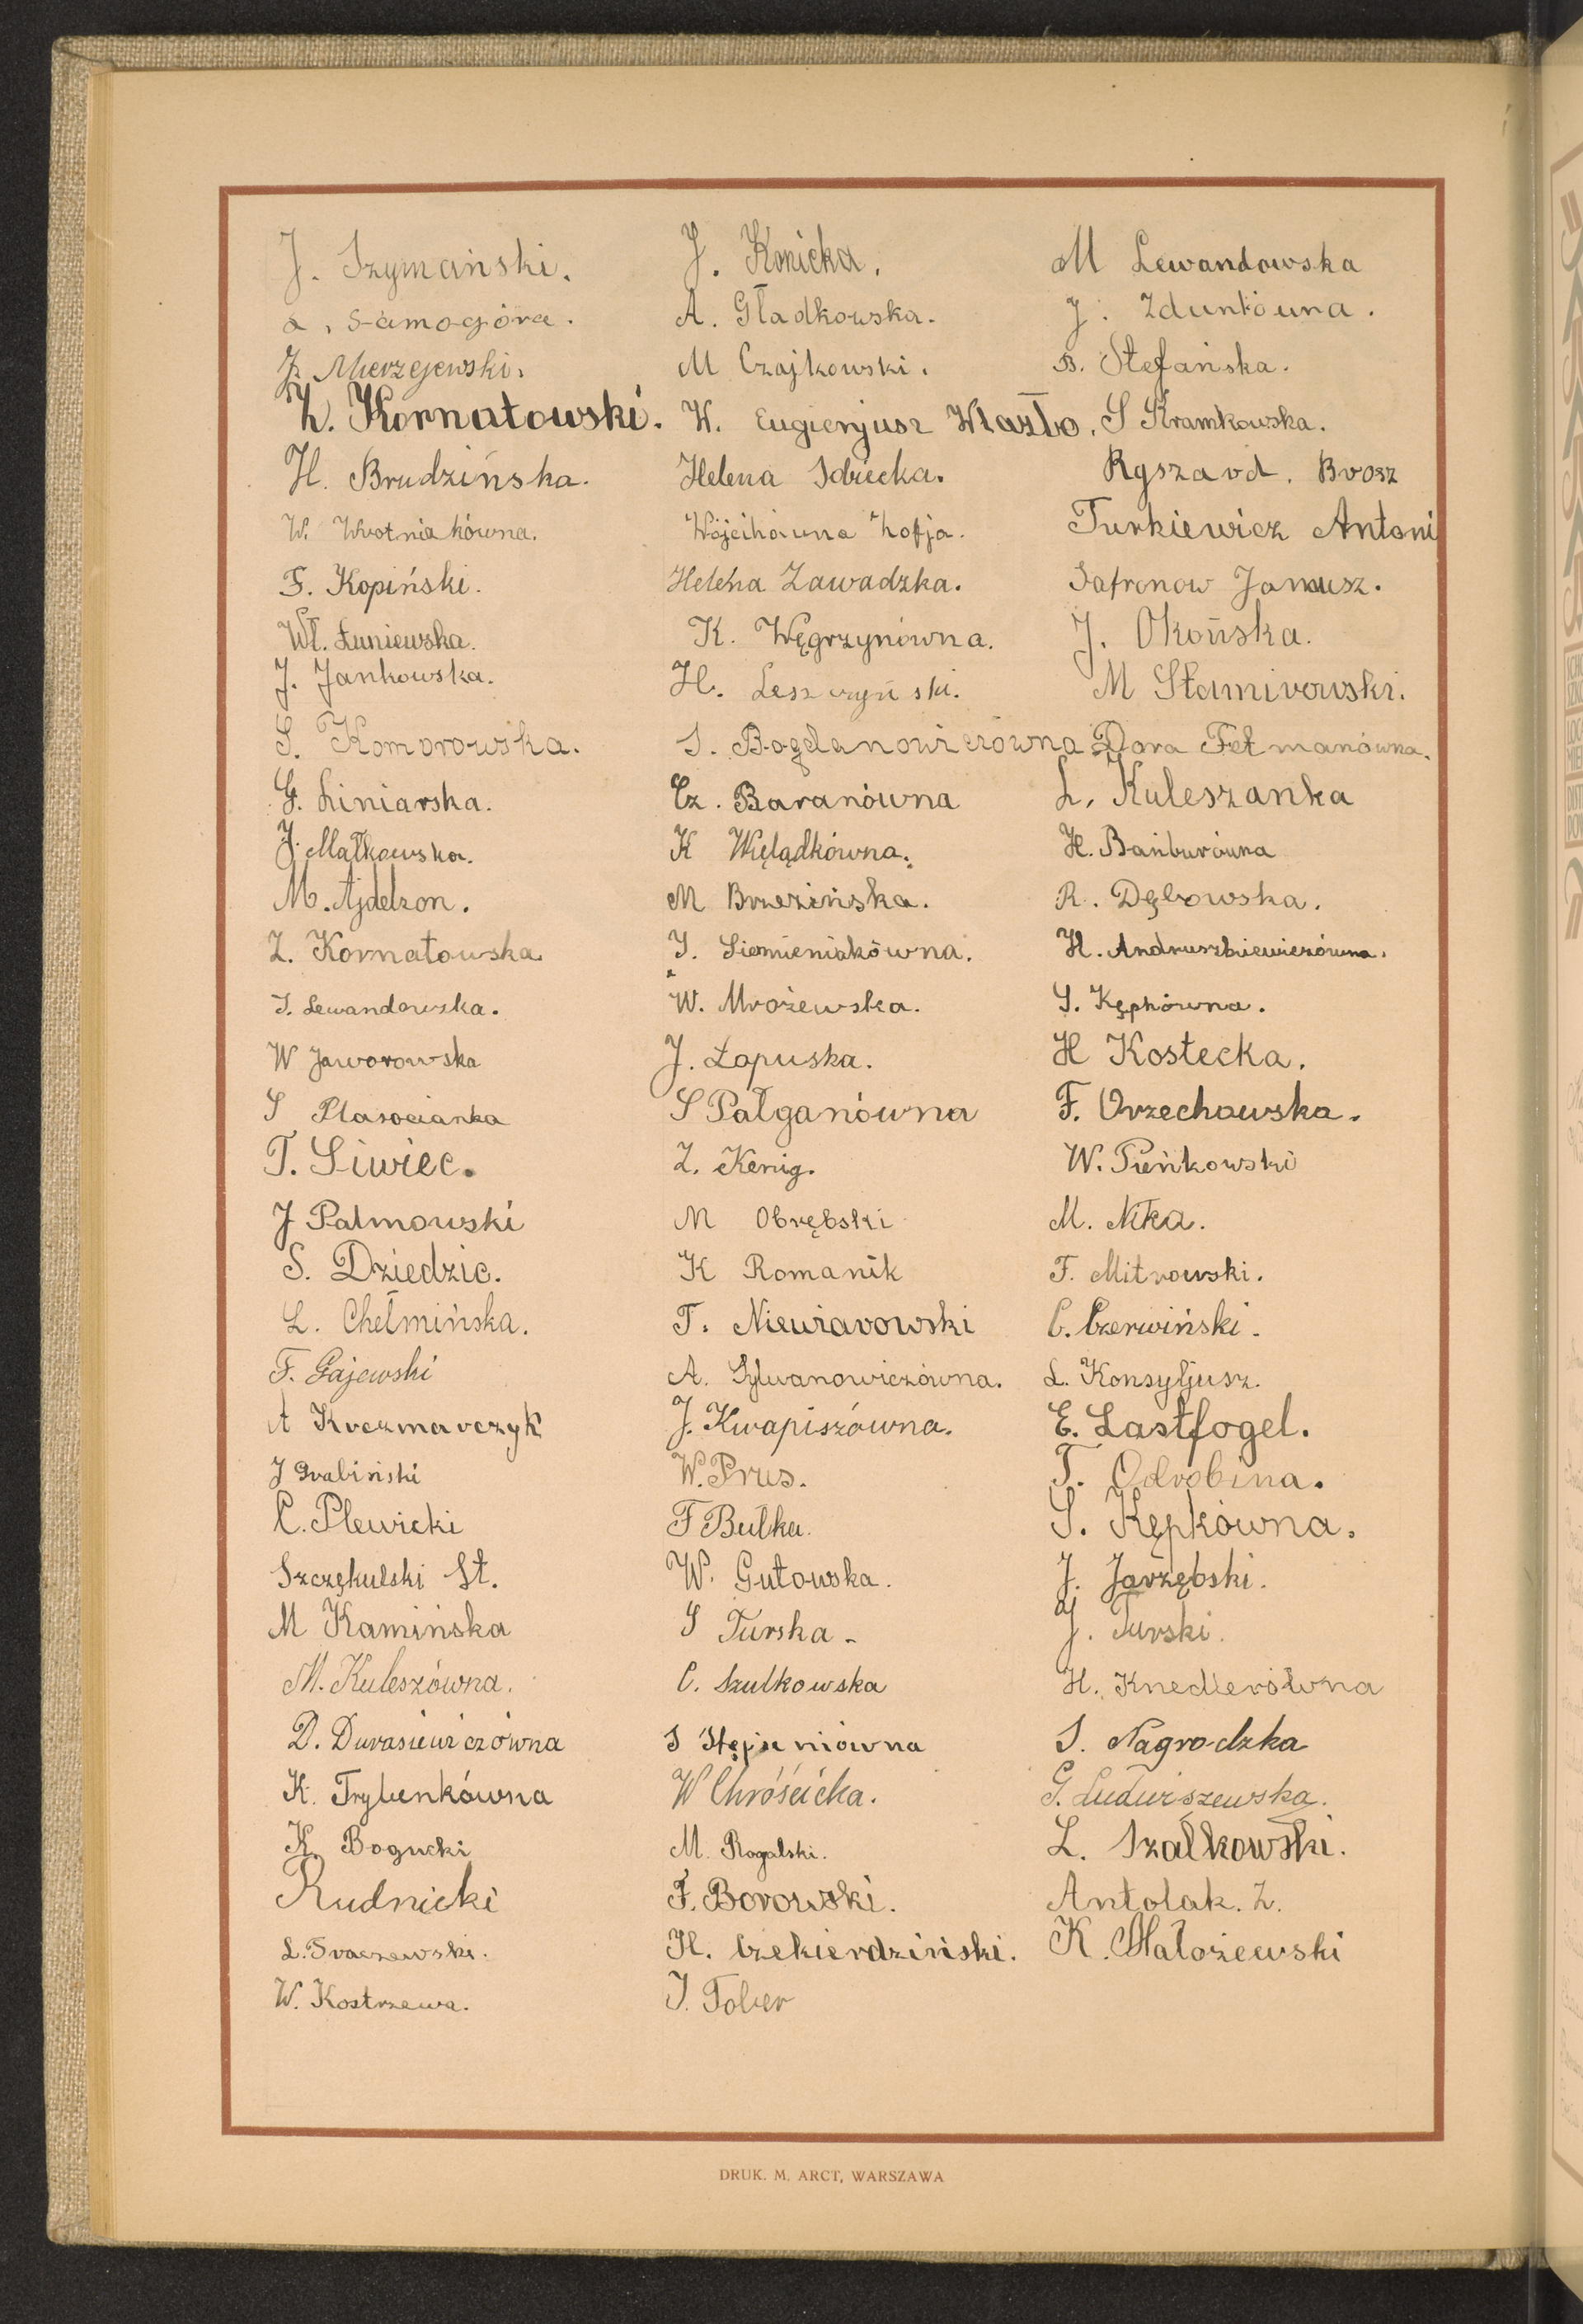 J. Szymański.
a, Samogóra.
J. Mierzejewski.
Z. Kornatowski.
H. Brudzińska.
W. Wrotniakówna.
F. Kopiński.
Wł. Łuniewska.
J. Jankowska.
S. Komorowska.
G. Liniarska.
J. Małkowska.
M. Ajdelzon.
Z. Kornatowska
J. Lewandowska.
W Jaworowska
S Plasocianka
T. Siwiec.
J Palmowski
S. Dziedzic.
L. Chełmińska.
F. Gajewski
A Krczmarczyk
J Grabiński
C. Plewicki
Szczękulski St.
M Kamińska
M. Kuleszówna.
D. Durasiewiczówna
K. Trybenkówna
K. Bogucki
Rudnicki
L. Traczewski.
W. Kostrzewa.
J. Konicka.
A. Gładkowska.
M Czajkowski.
W. Eugienjusz Wlazło.
Helena Idziecka.
Wójcikówna Zofja.
Helena Zawadzka.
K. Węgrzynówna.
H. Leszczyński.
S. Bogdanowiczówna
Cz. Baranówna
K Wielądkówna.
M Brzezińska.
J. Siemieniakówna.
W. Mrożewska.
J. Łapuska.
S Pałganówna
Z. Kenig.
M Obrębski
K Romanik
T. Niewiarowski
A. Sylwanowiczówna.
J. Kwapiszówna.
W. Prus.
F Bulka.
W. Gutowska.
S Turska -
C. Szulkowska
S Stępniówna
W Chróścicka.
M. Rogalski.
F. Borowski.
H. Czekierdziński.
J. Tober
M Lewandowska
J. Zduntówna.
B. Stefańska.
S Kramkowska.
Ryszard. Brosz
Turkiewicz Antoni
Safronow Janusz.
J. Okońska.
M Stamirowski.
Dora Felmanówna.
L. Kuleszanka
H. Bańburówna
R. Dębowska.
H. Andruszkiewiczówna.
S. Kępkówna.
H Kostecka.
F. Orzechowska.
W. Pieńkowski
M. Nitka.
F. Mitrowski.
C. Czerwiński.
L. Konsyljusz.
E. Lastfogel.
T. Odrobina.
S. Kępkówna.
J. Jarzębski.
J. Turski.
H. Knedlerówna
S. Nagrodzka
G. Ludwiszewska.
L. Szałkowski.
Antolak. Z.
K. Małożewski
DRUK. M. ARCT, WARSZAWA